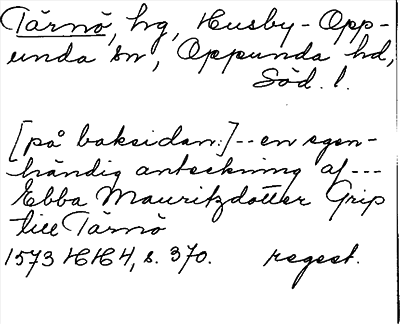 Tärnö, hg, Husby-Opp-
unda sn, Oppunda hd,
Söd. l.
[på baksidan:] -- en egen-
händig anteckning af ---
Ebba Mauritzdotter Grip
till Tärnö
1573 HH 4, s. 370. regest.